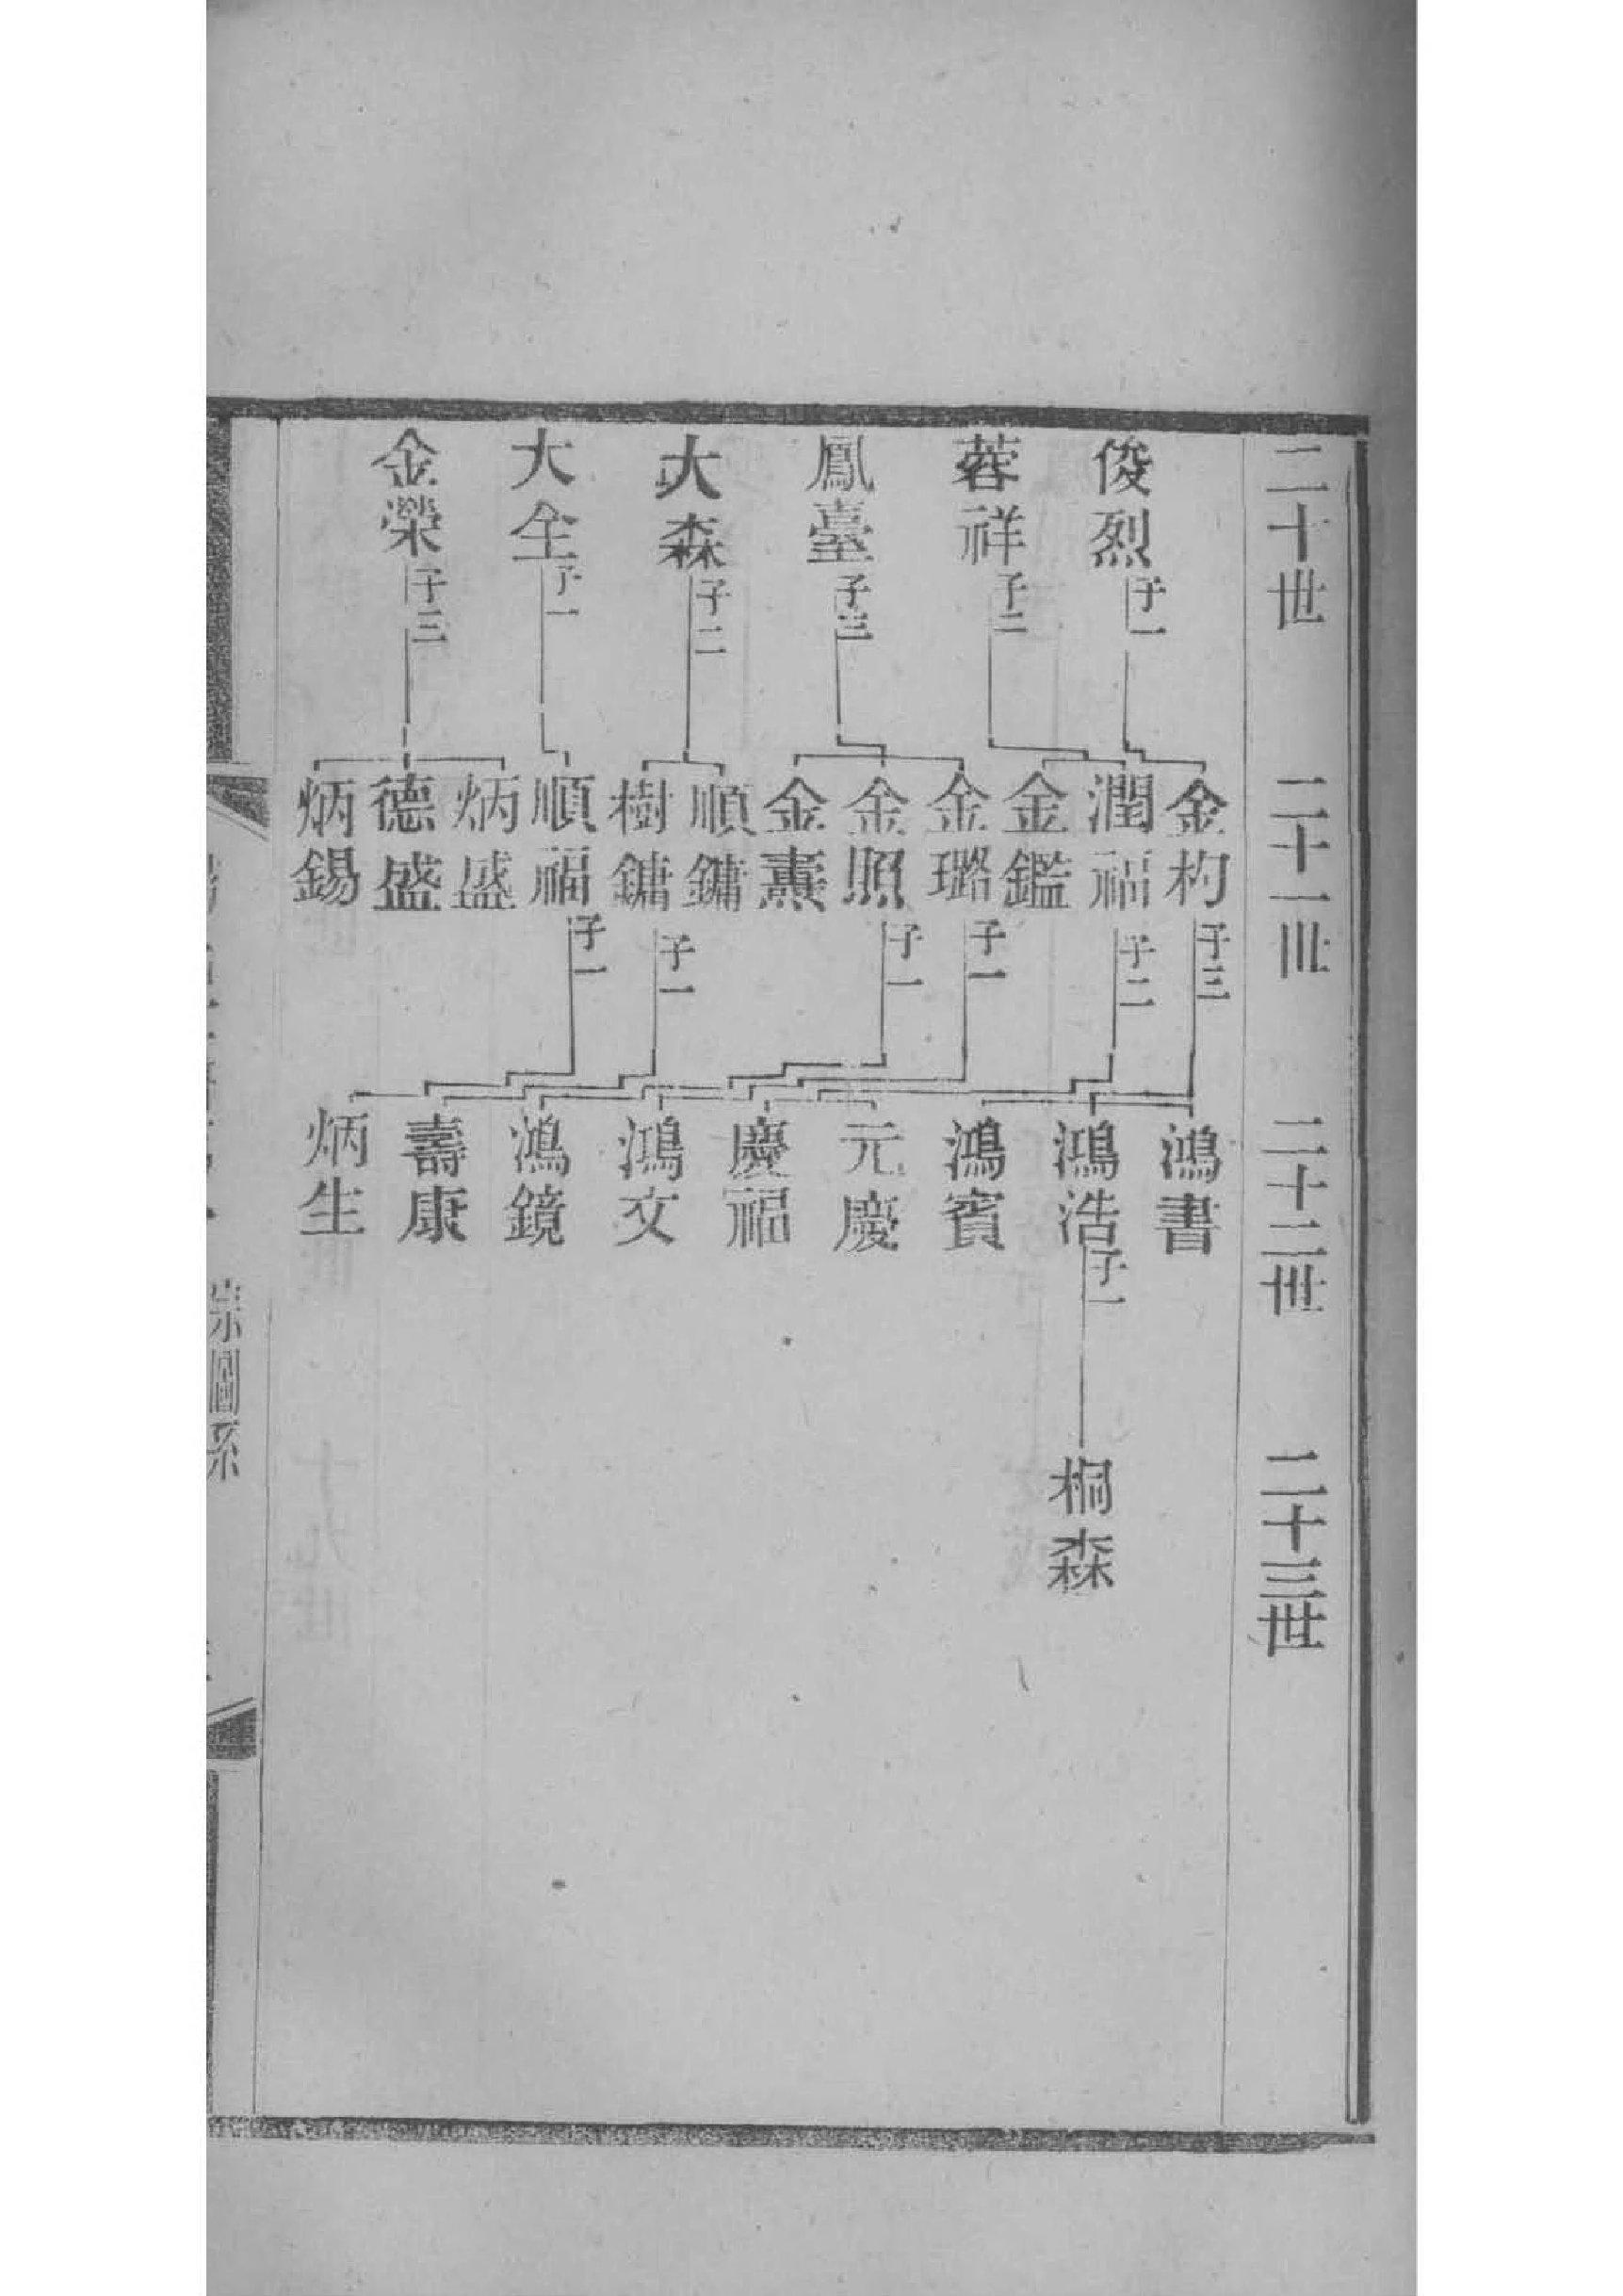 二十世
二十一世
二十二世
二十三世
俊烈
子一
蓉祥
子二
鳳臺
子三
大森
子二
大全
子一
金榮
子三
金杓
子三
潤福
子二
金鑑
金璐
子一
金照
子一
金薰
順鏞
樹鏞
子一
順福
子一
炳盛
德盛
炳錫
鴻書
鴻浩
子一
鴻賓
元慶
慶福
鴻文
鴻鏡
壽康
炳生
桐森
宗圖系